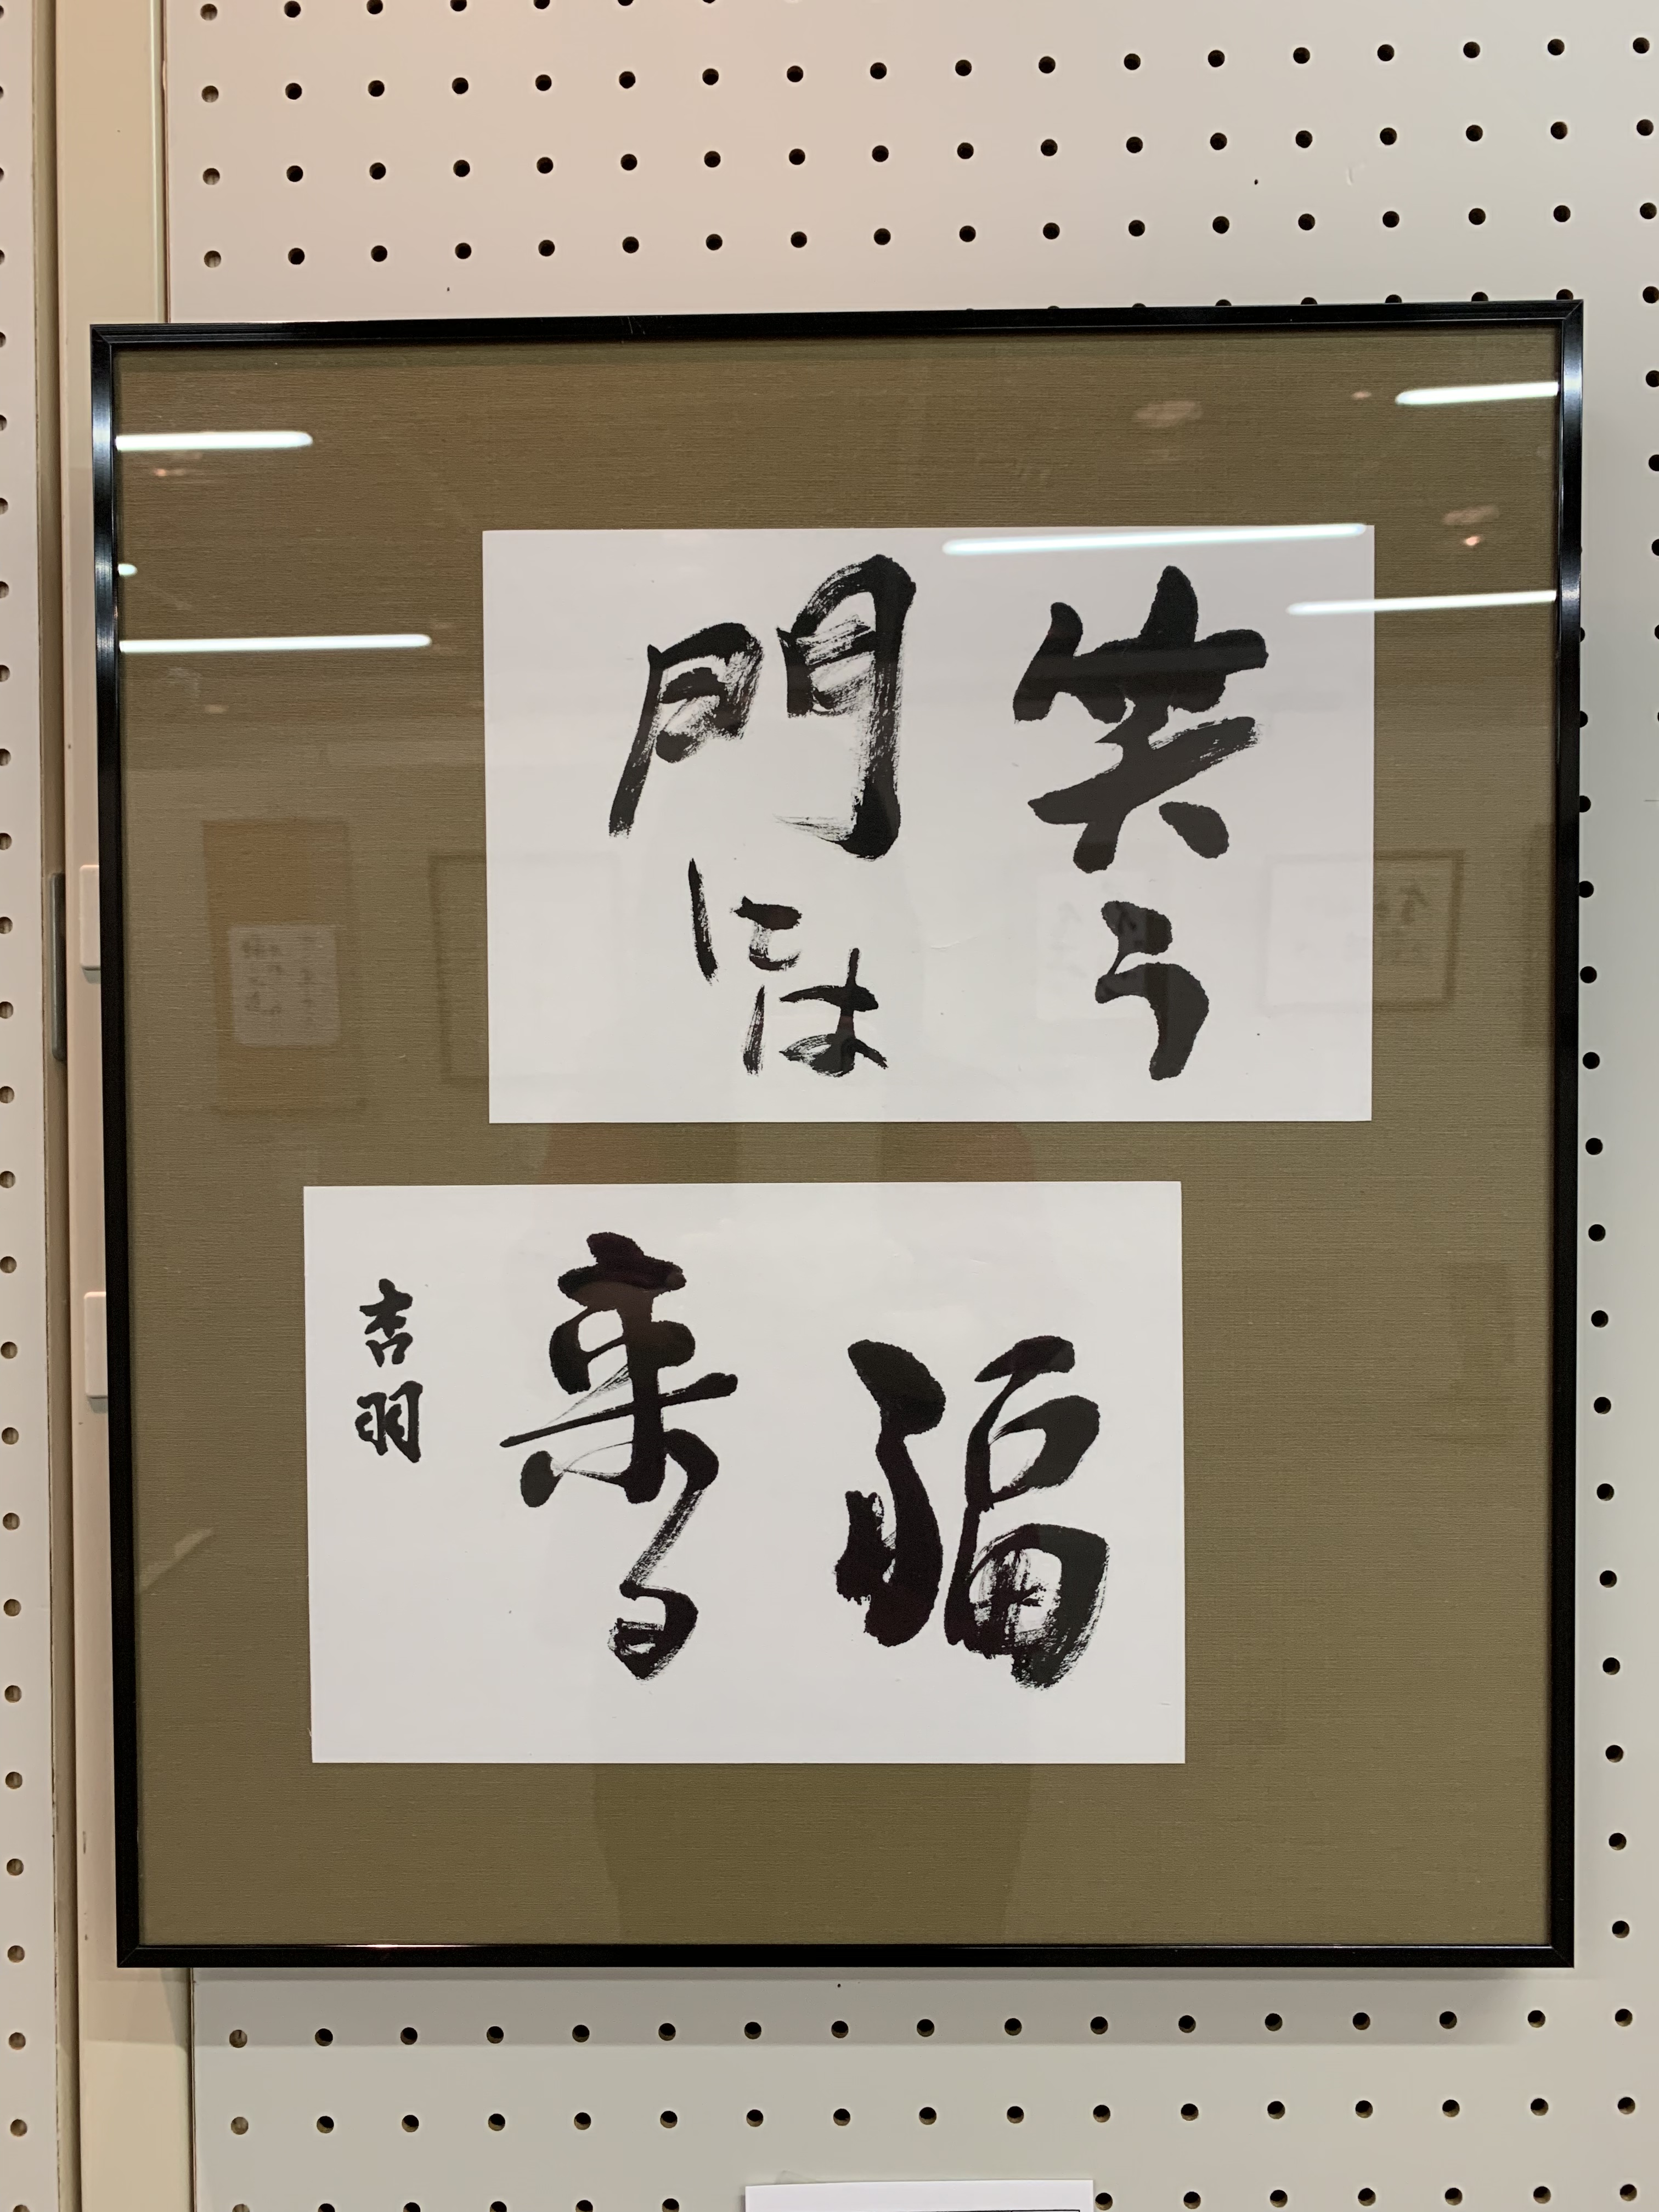 笑う
門には
福
来る
杏羽